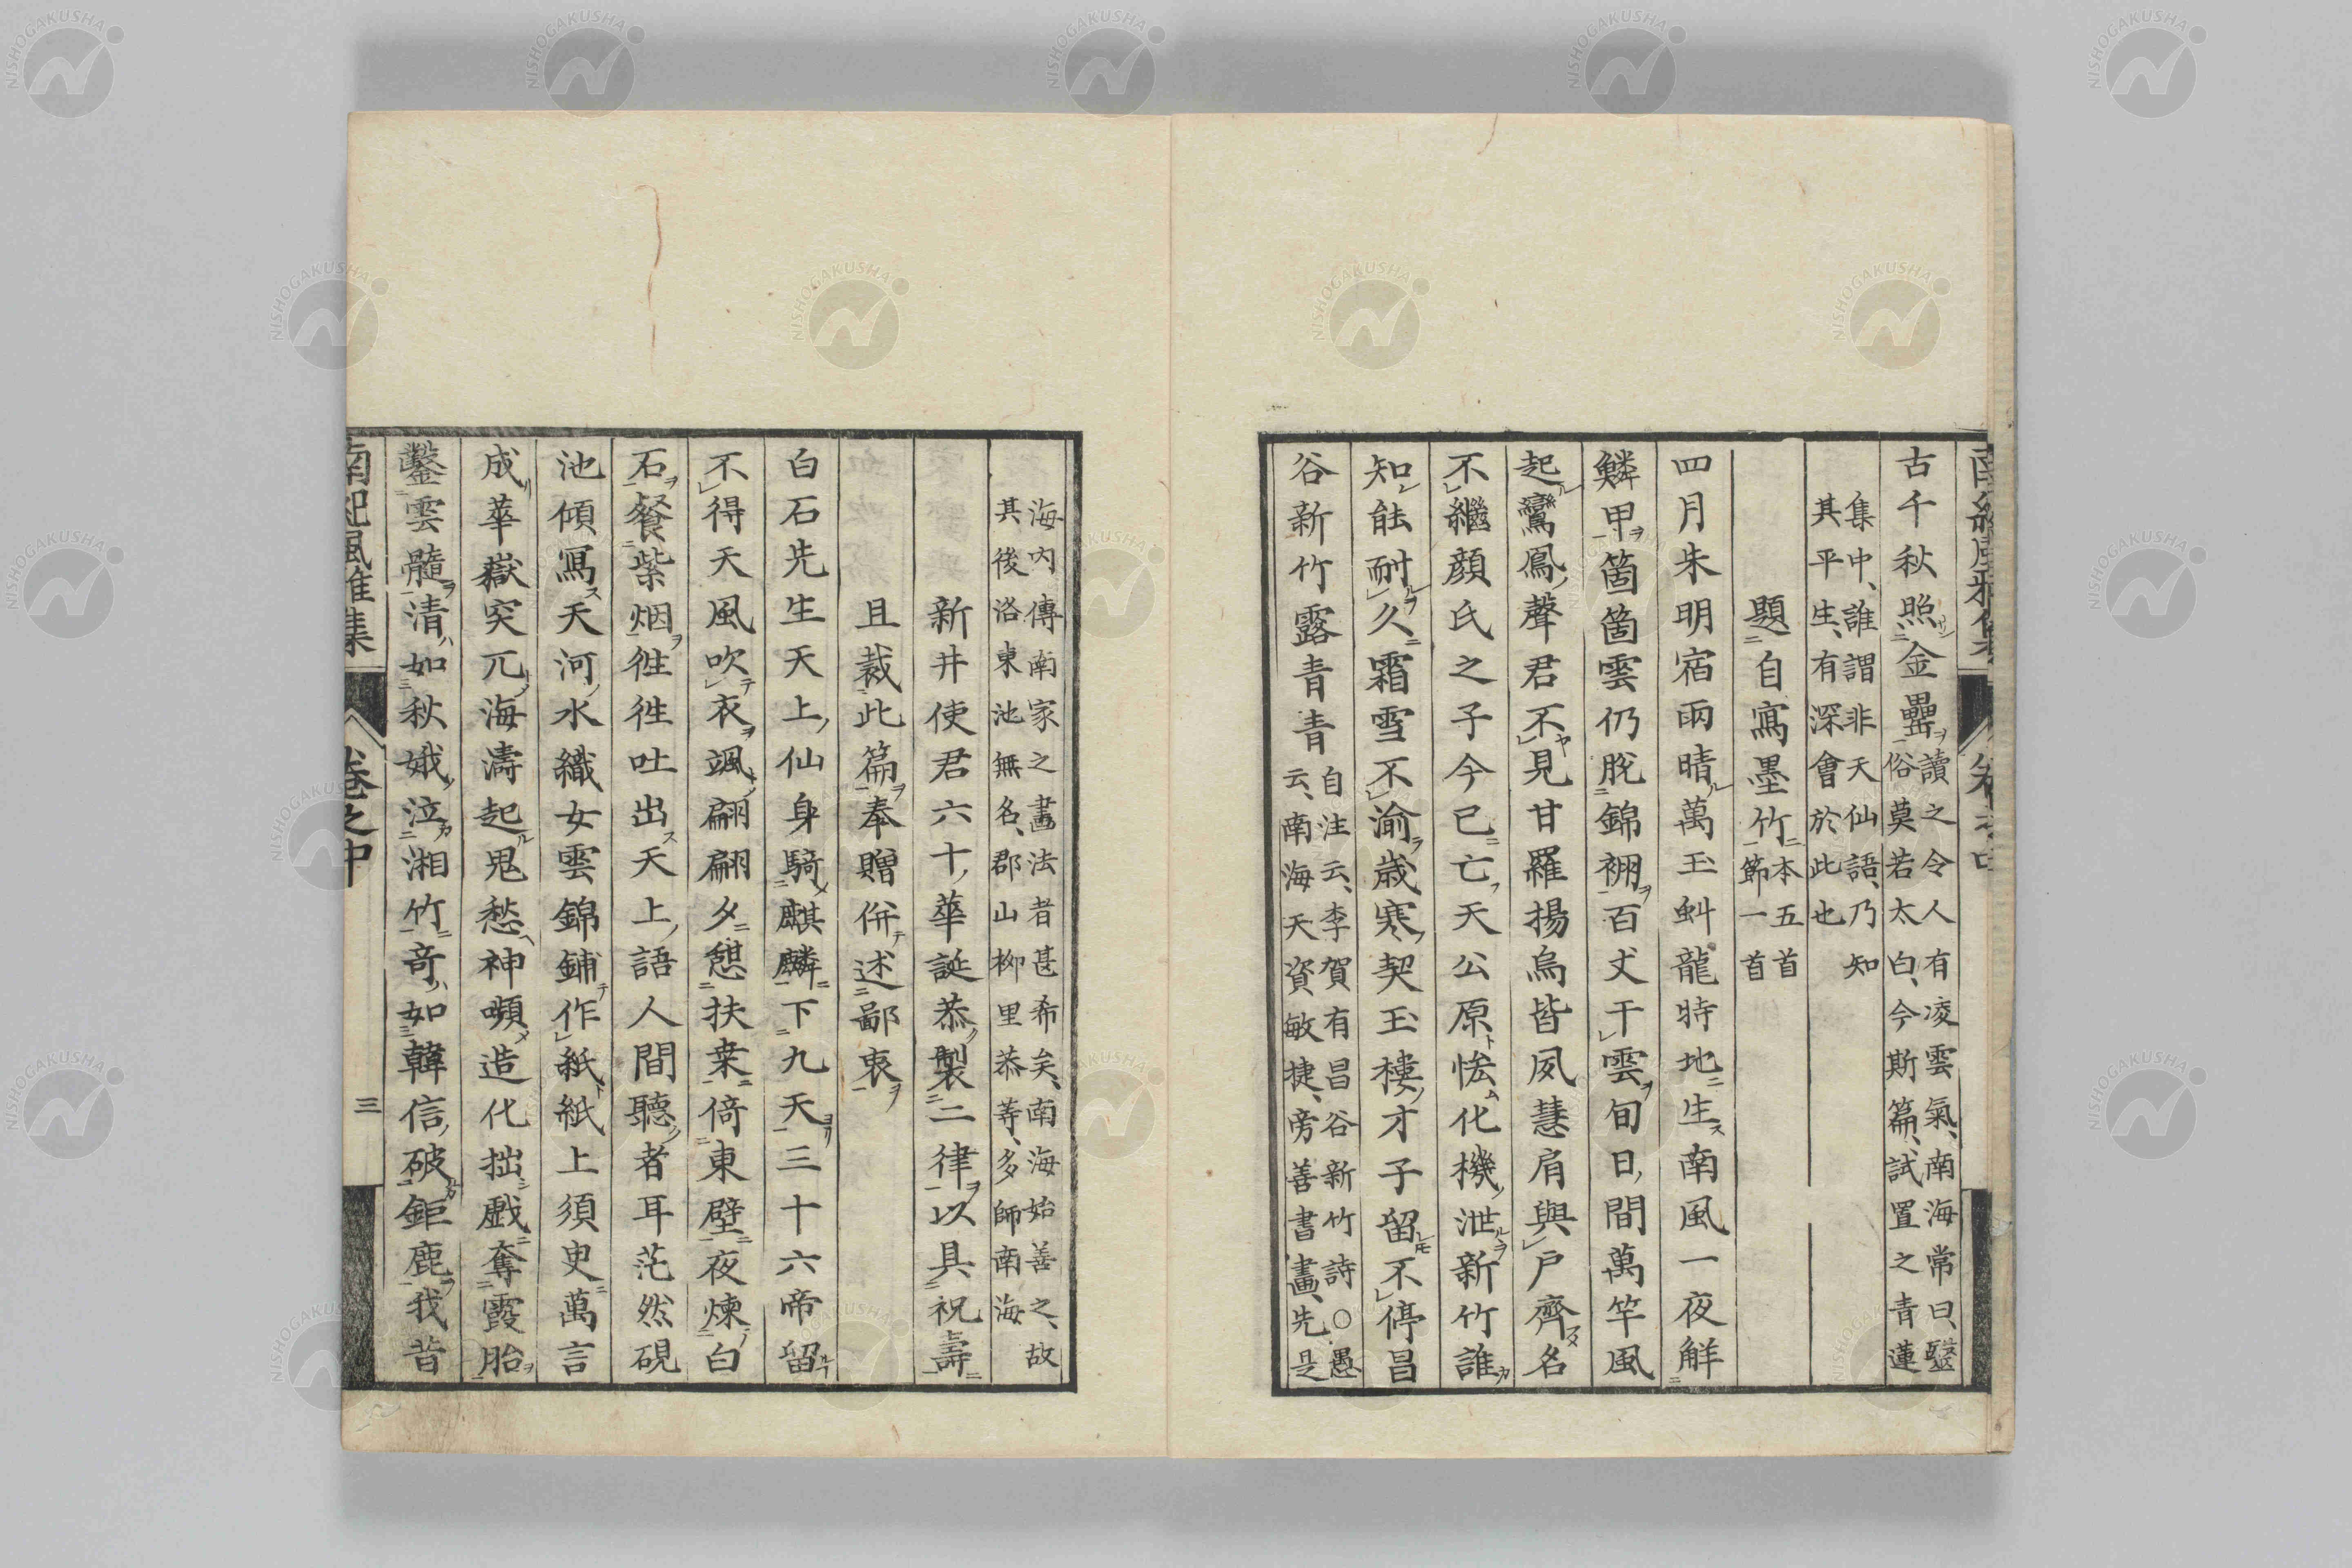 古千秋照金罍讀之令人有凌雲氣、南海常曰、醫
俗莫若太白、今斯篇、試置之青蓮
集中、誰謂非天仙語、乃知
其平生、有深會於此也
題自寫墨竹本五首
節一首
四月朱明宿雨晴萬玉虯龍特地生南風一夜觧
鱗甲箇箇雲仍脫錦裯百丈干雲旬日間萬竿風
起鸞鳳聲君不見甘羅揚烏皆夙慧肩與戶齊名
不繼顏氏之子今已亡天公原恡化機泄新竹誰
知能耐久霜雪不渝歲寒契玉樓才子留不停昌
谷新竹露青青自注云、李賀有昌谷新竹詩○愚
云、南海天資敏捷、旁善書畫、先是
海內傳南家之畫法者甚希矣、南海始善之、故
其後洛東池無名、郡山柳里恭等、多師南海
新井使君六十華誕恭製二律以具祝壽
且裁此篇奉贈併述鄙衷
白石先生天上仙身騎麒麟下九天三十六帝留
不得天風吹衣颯翩翩夕憩扶桒倚東壁夜煉白
石餐紫烟徃徃吐出天上語人間聽者耳茫然硯
池傾寫天河水織女雲錦鋪作紙紙上須史萬言
成華嶽突兀海濤起鬼愁神嚬造化拙戲奪霞胎
鑿雲髓清如秋娥泣湘竹奇如韓信破鉅鹿我昔
南紀風雅集
卷之中
三
NISHOGAKUSHA